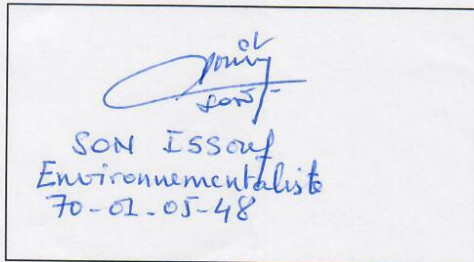 SON ISSouf
Environnementaliste
70-01-05-48